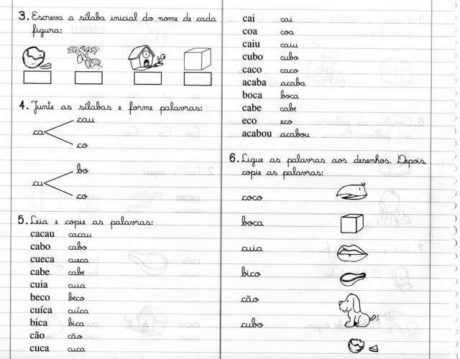 3. Escreva a sílaba inicial do nome de cada
figura:
4. Junte as sílabas e forme palavras:
ca
cau
co
cu
bo
co
5. Leia e copie as palavras:
cacau cacau
cabo cabo
cueca cueca
cabe cabe
cuia cuia
beco beco
cuíca cuíca
bica bica
cão cão
cuca cuca
cai cai
coa coa
caiu caiu
cubo cubo
caco caco
acaba acaba
boca boca
cabe cabe
eco eco
acabou acabou
6. Ligue as palavras aos desenhos. Depois,
copie as palavras:
coco
boca
cuia
bico
cão
cubo